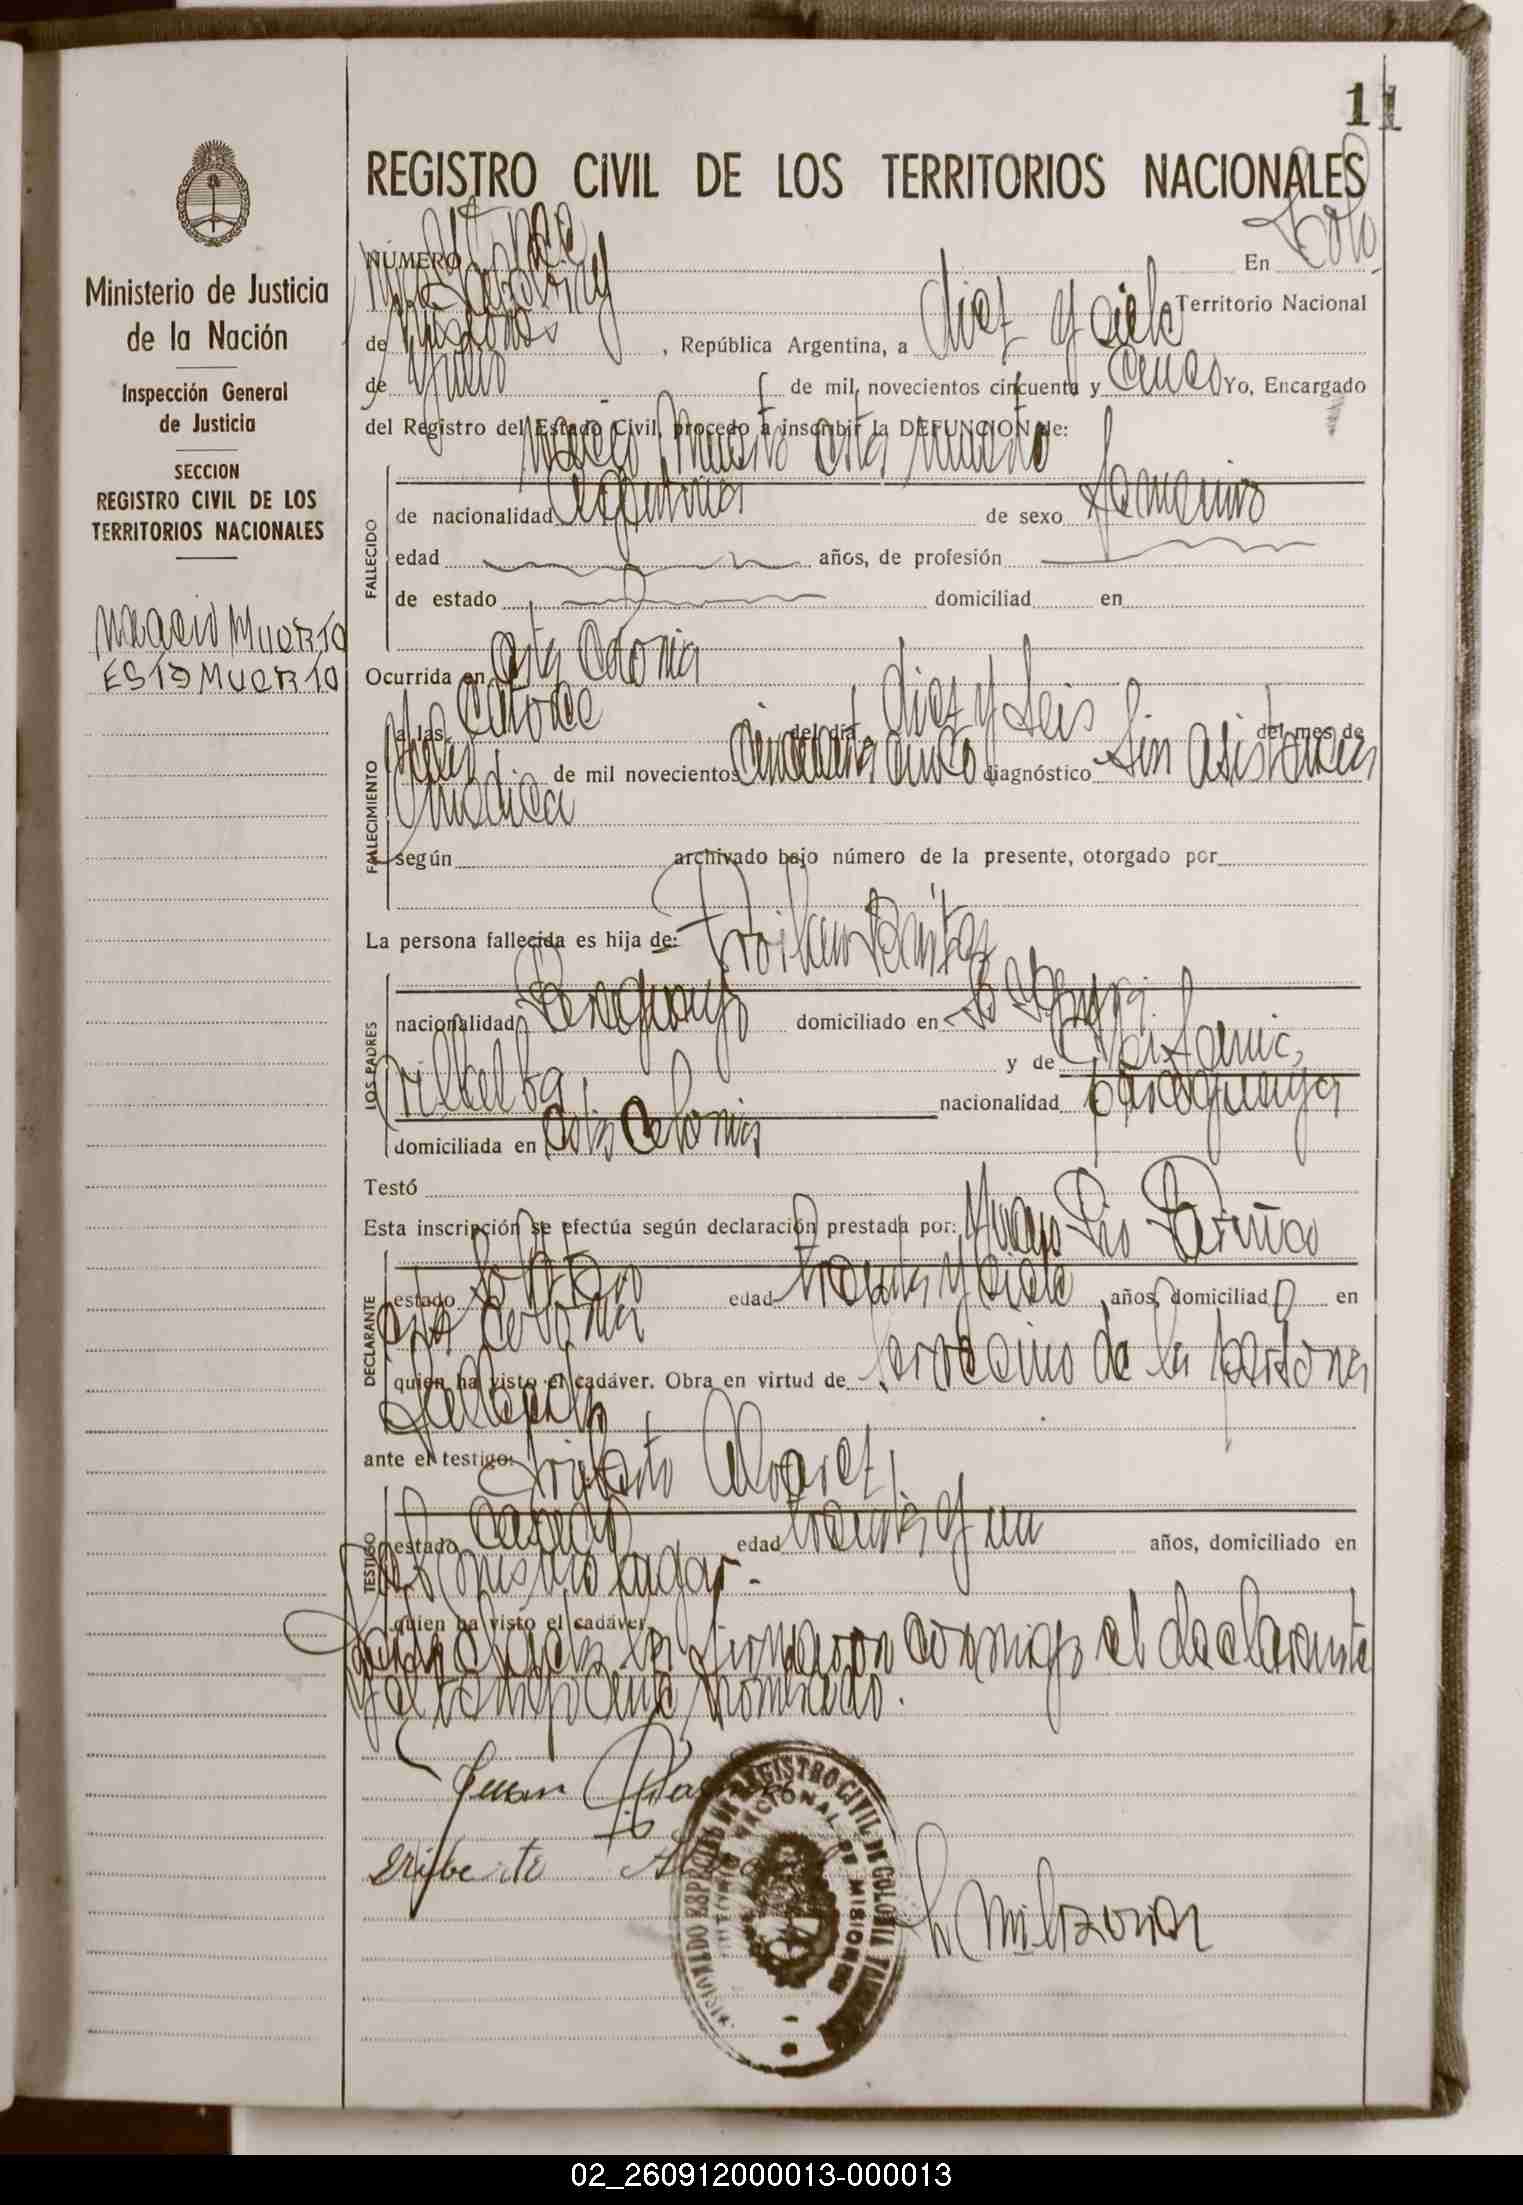 11
REGISTRO CIVIL DE LOS TERRITORIOS NACIONALES
Ministerio de Justicia
de la Nación
Inspección General
de Justicia
SECCION
REGISTRO CIVIL DE LOS
TERRITORIOS NACIONALES
MUERTO
ESTA MUERTO
NÚMERO Once En Colo
Territorio Nacional
de Misiones, República Argentina, a diez y siete
de de mil novecientos cincuenta y cinco Yo, Encargado
del Registro del Estado Civil, procedo a inscribir la DEFUNCION de:
Nacio Muerto esta muerto
FALLECIDO
de nacionalidad argentina de sexo femenino
edad años, de profesión
de estado domiciliad en
Ocurrida en esta Colonia
FALLECIMIENTO
a las catorce del día diez y seis del mes de
de mil novecientos cincuenta cinco diagnóstico Sin asistencia
medica
según archivado bajo número de la presente, otorgado por
La persona fallecida es hija de: Troilan Benitez
LOS PADRES
nacionalidad Paraguayo domiciliado en
y de
Villalba nacionalidad paraguaya
domiciliada en esta Colonia
Testó
Esta inscripción se efectúa según declaración prestada por: Juan Pio
DECLARANTE
estado Soltero edad treinta y siete años, domiciliado en
esta Colonia
quien ha visto el cadáver. Obra en virtud de de la
ante el testigo: Eriberto Alvarez
TESTIGO
estado casado edad treinta y un años, domiciliado en
el mismo lugar.-
quien ha visto el cadáver
Leida el acta la firmaron conmigo el declarante
y el testigo ante nombrado.
Juan
Eriberto
REGISTRO CIVIL DE COLONIA
NACIONAL DE MISIONES
02_260912000013-000013